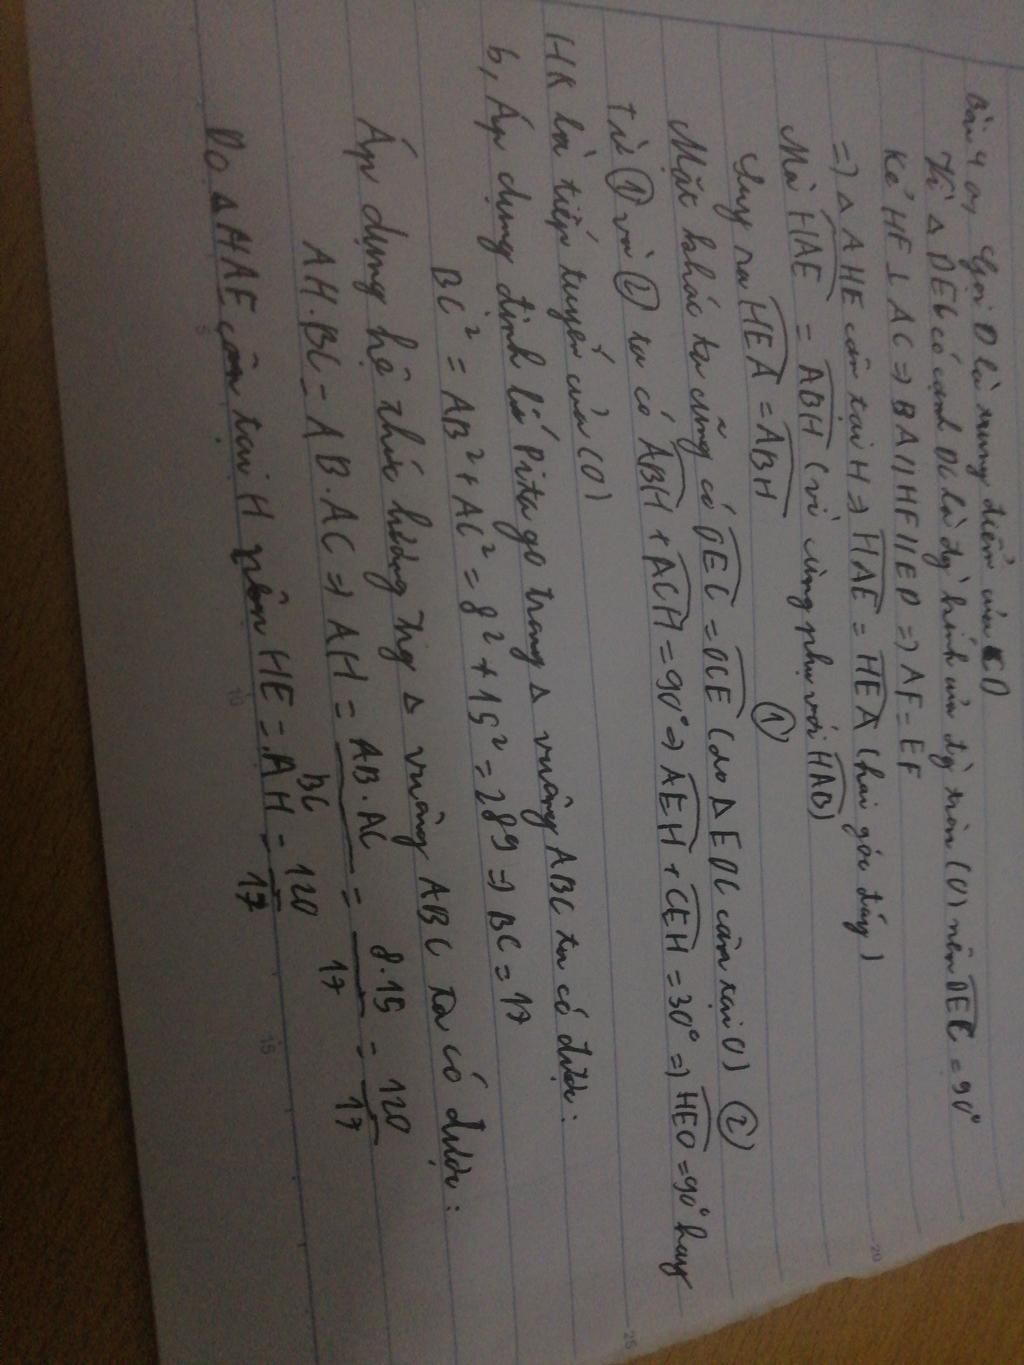 Bài 4 a, Gọi O là trung điểm của CD
Vì △ DEC có cạnh DC là đg` kính của đg` tròn (O) nên DEC = 90°
Kẻ HF ⊥ AC => BA // HF // ED => AF = EF
=> △ AHE cân tại H => HAE = HEA (hai góc đáy)
Mà HAE = ABH (vì cùng phụ với HAB)
Suy ra HEA = ABH ①
Mặt khác ta cũng có OEC = OCE (do △ EOC cân tại O) ②
Từ ① và ② ta có ABH + ACH = 90° => AEH + CEH = 90° => HEO = 90° hay
HE là tiếp tuyến của (O)
b, Áp dụng định lí Pitago trong △ vuông ABC ta có được:
BC² = AB² + AC² = 8² + 15² = 289 => BC = 17
Áp dụng hệ thức lượng trg △ vuông ABC ta có được:
AH.BC = AB.AC => AH = AB.AC / BC = 8.15 / 17 = 120 / 17
Do △ HAE cân tại H nên HE = AH = 120 / 17
5
10
15
20
25